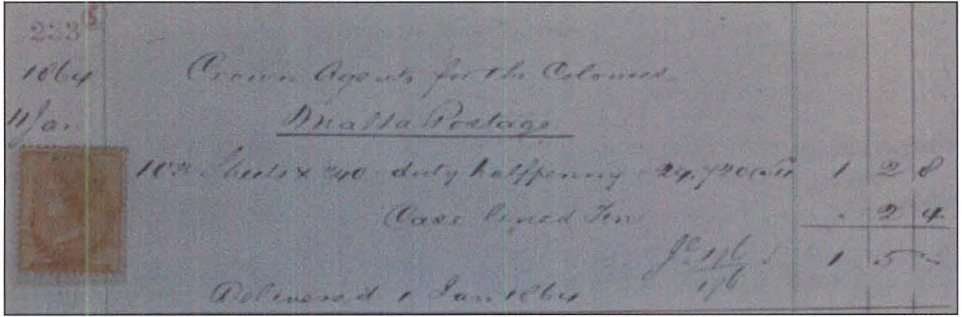 233 5
1864 Crown Agents for the Colonies
11 Jan Malta Postage
103 Sheets x 240 duty halfpenny 24,720 1 2 8
Case lined Tin . 2 4
1 5 -
Delivered 1 Jan 1864